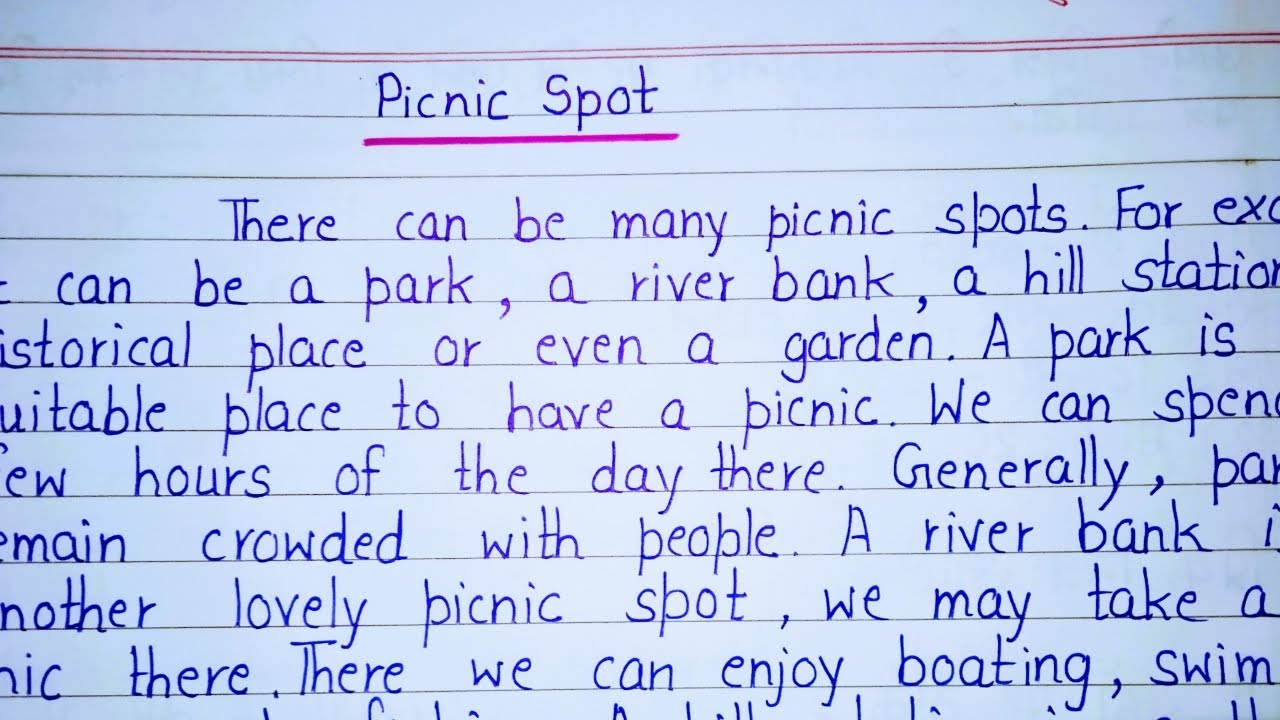 Picnic Spot
There can be many picnic spots. For exa
t can be a park, a river bank, a hill station
istorical place or even a garden. A park is
uitable place to have a picnic. We can spend
few hours of the day there. Generally, par
emain crowded with people. A river bank i
nother lovely picnic spot, we may take a
nic there. There we can enjoy boating, swim